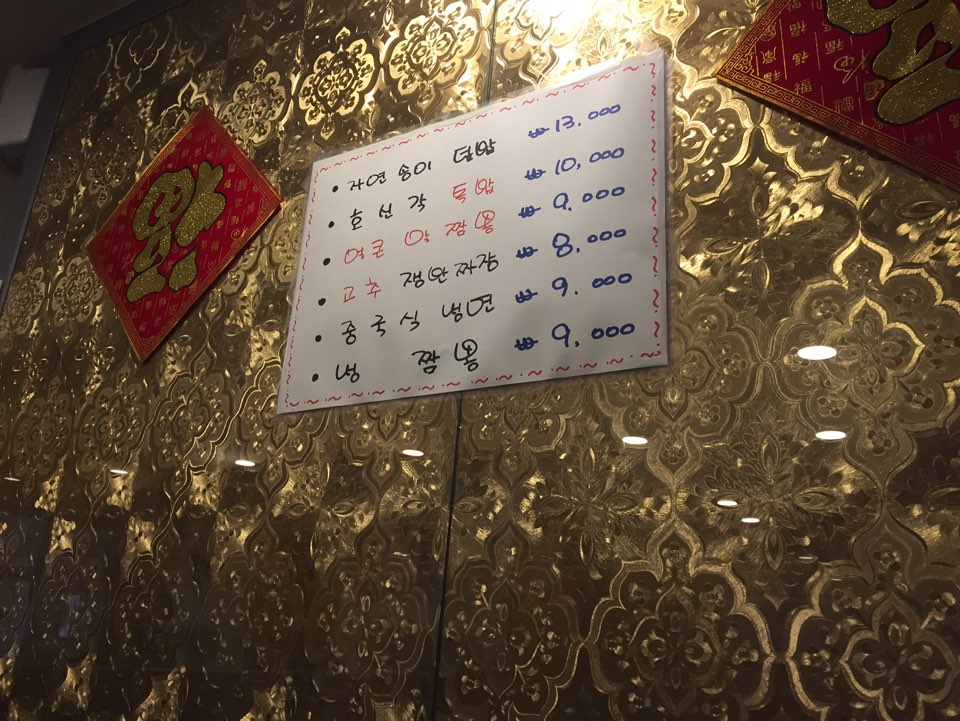 • 자연 송이 덮밥 ₩ 13.000
• 호 신 각 특밥 ₩ 10,000
• 얼큰 알 짬뽕 ₩ 9.000
• 고추 쟁반짜장 ₩ 8.000
• 중국식 냉면 ₩ 9.000
• 냉 짬뽕 ₩ 9.000
福